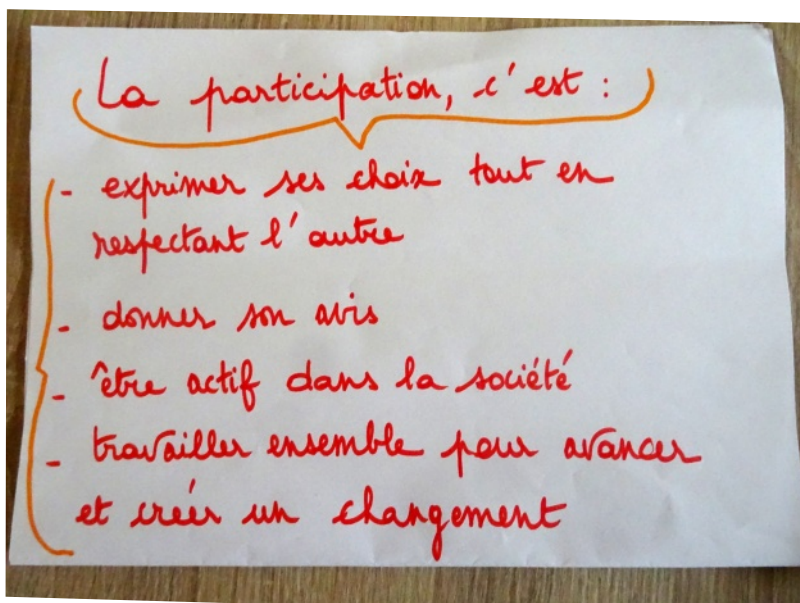 La participation, c'est :
- exprimer ses choix tout en
respectant l'autre
- donner son avis
- être actif dans la société
- travailler ensemble pour avancer
et créer un changement